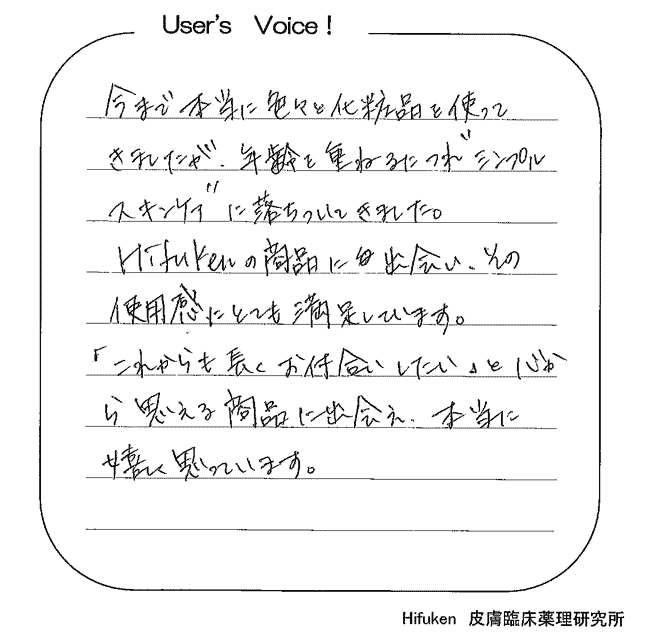 User's Voice!
今まで本当に色々と化粧品を使って
きましたが、年齢を重ねるにつれ"シンプル
スキンケア"に落ちついてきました。
Hifukenの商品に出会い、その
使用感にとても満足しています。
「これからも長くお付合いしたい」と心か
ら思える商品に出会え、本当に
嬉しく思っています。
Hifuken 皮膚臨床薬理研究所